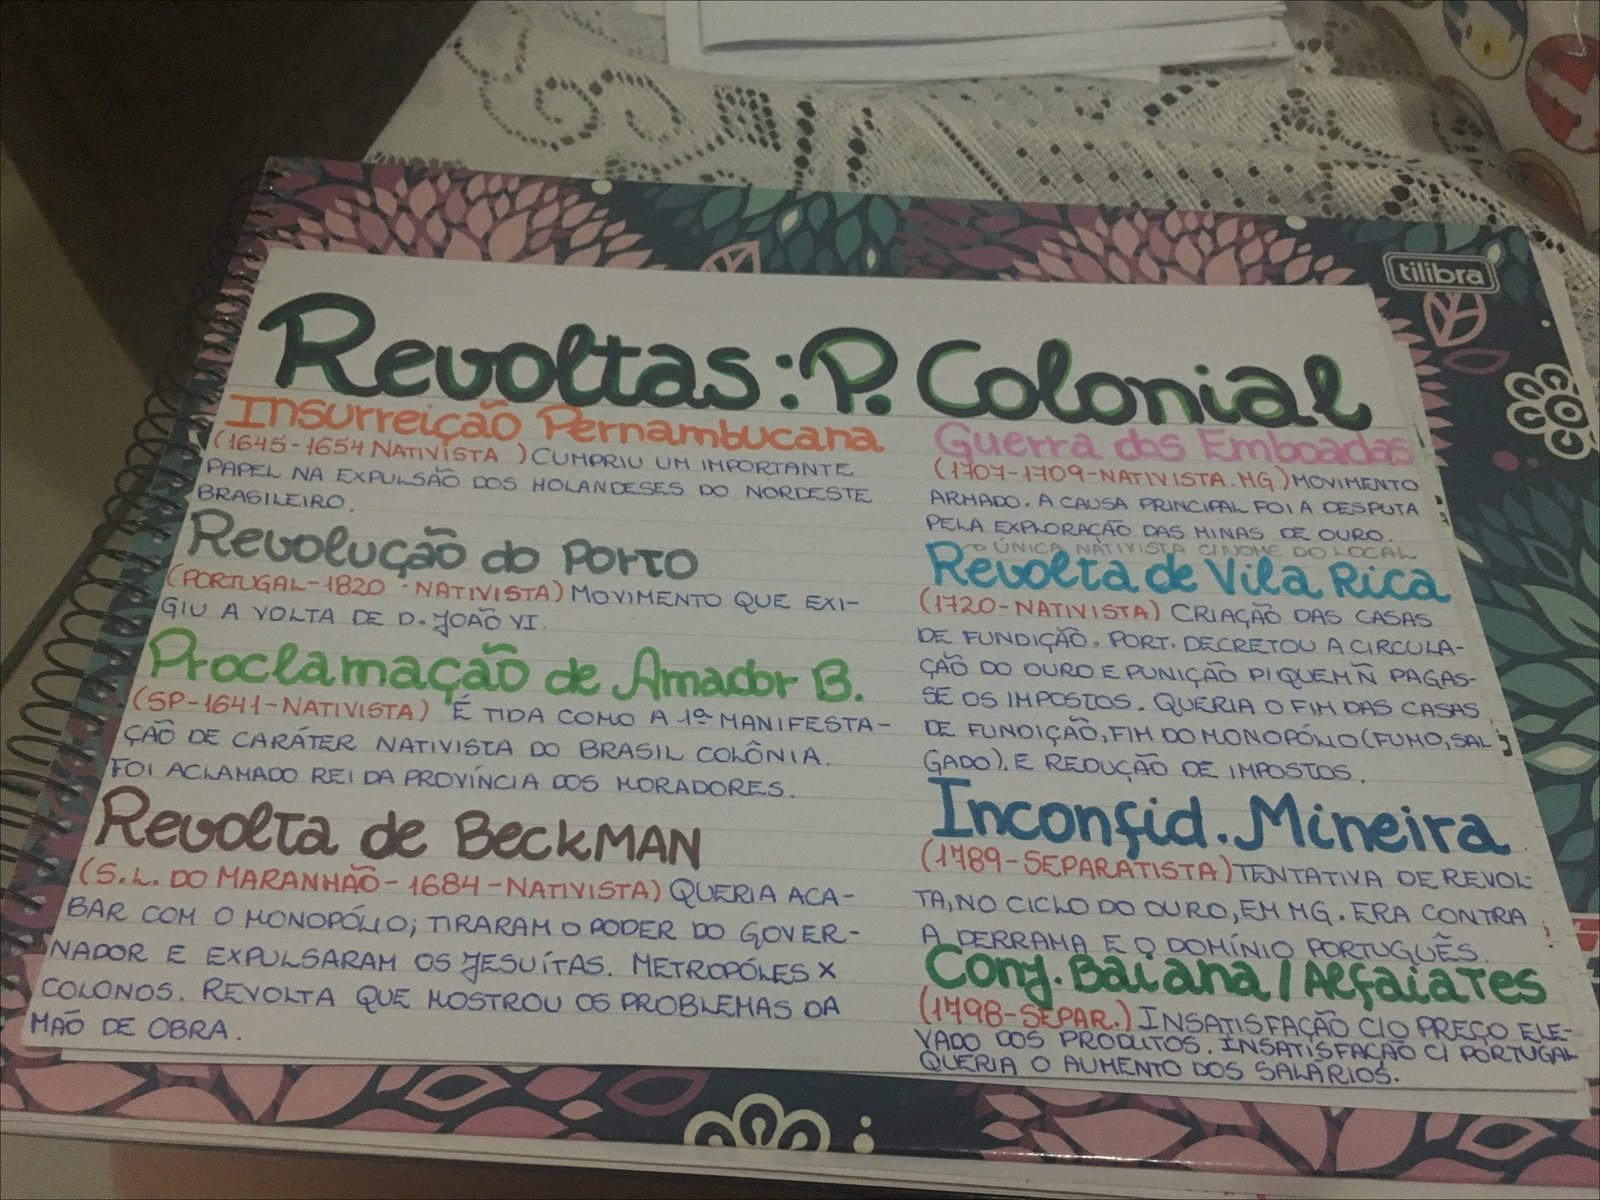 tilibra
Revoltas: P. Colonial
Insurreição Pernambucana
(1645-1654 NATIVISTA ) CUMPRIU UM IMPORTANTE
PAPEL NA EXPULSÃO DOS HOLANDESES DO NORDESTE
BRASILEIRO.
Revolução do Porto
(PORTUGAL-1820 - NATIVISTA) MOVIMENTO QUE EXI-
GIU A VOLTA DE D. JOÃO VI.
Proclamação de Amador B.
(SP-1641-NATIVISTA) É TIDA COMO A 1ª MANIFESTA-
ÇÃO DE CARÁTER NATIVISTA DO BRASIL COLÔNIA.
FOI ACLAMADO REI DA PROVÍNCIA DOS MORADORES.
Revolta de Beckman
(S.L. DO MARANHÃO-1684-NATIVISTA) QUERIA ACA-
BAR COM O MONOPÓLIO; TIRARAM O PODER DO GOVER-
NADOR E EXPULSARAM OS JESUÍTAS. METROPÓLES X
COLONOS. REVOLTA QUE MOSTROU OS PROBLEMAS DA
MÃO DE OBRA.
Guerra dos Emboadas
(1707-1709-NATIVISTA. MG) MOVIMENTO
ARMADO. A CAUSA PRINCIPAL FOI A DESPUTA
PELA EXPLORAÇÃO DAS MINAS DE OURO.
ÚNICA NATIVISTA C/NOME DO LOCAL
Revolta de Vila Rica
(1720-NATIVISTA) CRIAÇÃO DAS CASAS
DE FUNDIÇÃO. PORT. DECRETOU A CIRCULA-
ÇÃO DO OURO E PUNIÇÃO P/ QUEM Ñ PAGAS-
SE OS IMPOSTOS. QUERIA O FIM DAS CASAS
DE FUNDIÇÃO, FIM DO MONOPÓLIO (FUMO, SAL
GADO). E REDUÇÃO DE IMPOSTOS.
Inconfid. Mineira
(1789-SEPARATISTA) TENTATIVA DE REVOL-
TA, NO CICLO DO OURO, EM MG. ERA CONTRA
A DERRAMA E O DOMÍNIO PORTUGUÊS.
Conj. Baiana / Alfaiates
(1798-SEPAR.) INSATISFAÇÃO C/O PREÇO ELE-
VADO DOS PRODUTOS. INSATISFAÇÃO C/ PORTUGAL
QUERIA O AUMENTO DOS SALÁRIOS.